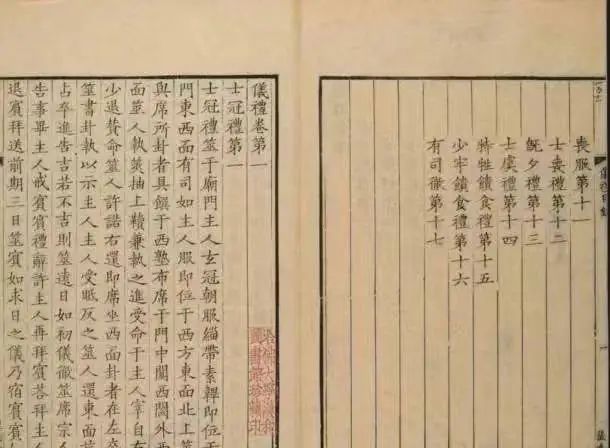 喪服第十一
士喪禮第十二
旣夕禮第十三
士虞禮第十四
特牲饋食禮第十五
少牢饋食禮第十六
有司徹第十七
儀禮卷第一
士冠禮第一
士冠禮筮于廟門主人玄冠朝服緇帶素韠即位于
門東西面有司如主人服即位于西方東面北上筮
與席所卦者具饌于西塾布席于門中闑西閾外西
面筮人執筴抽上韇兼執之進受命于主人宰自右
少退贊命筮人許諾右還即席坐西面卦者在左卒
筮書卦執以示主人主人受眡反之筮人還東面旅
占卒進告吉若不吉則筮遠日如初儀徹筮席宗人
告事畢主人戒賓賓禮辭許主人再拜賓荅拜主人
退賓拜送前期三日筮賓如求日之儀乃宿賓賓